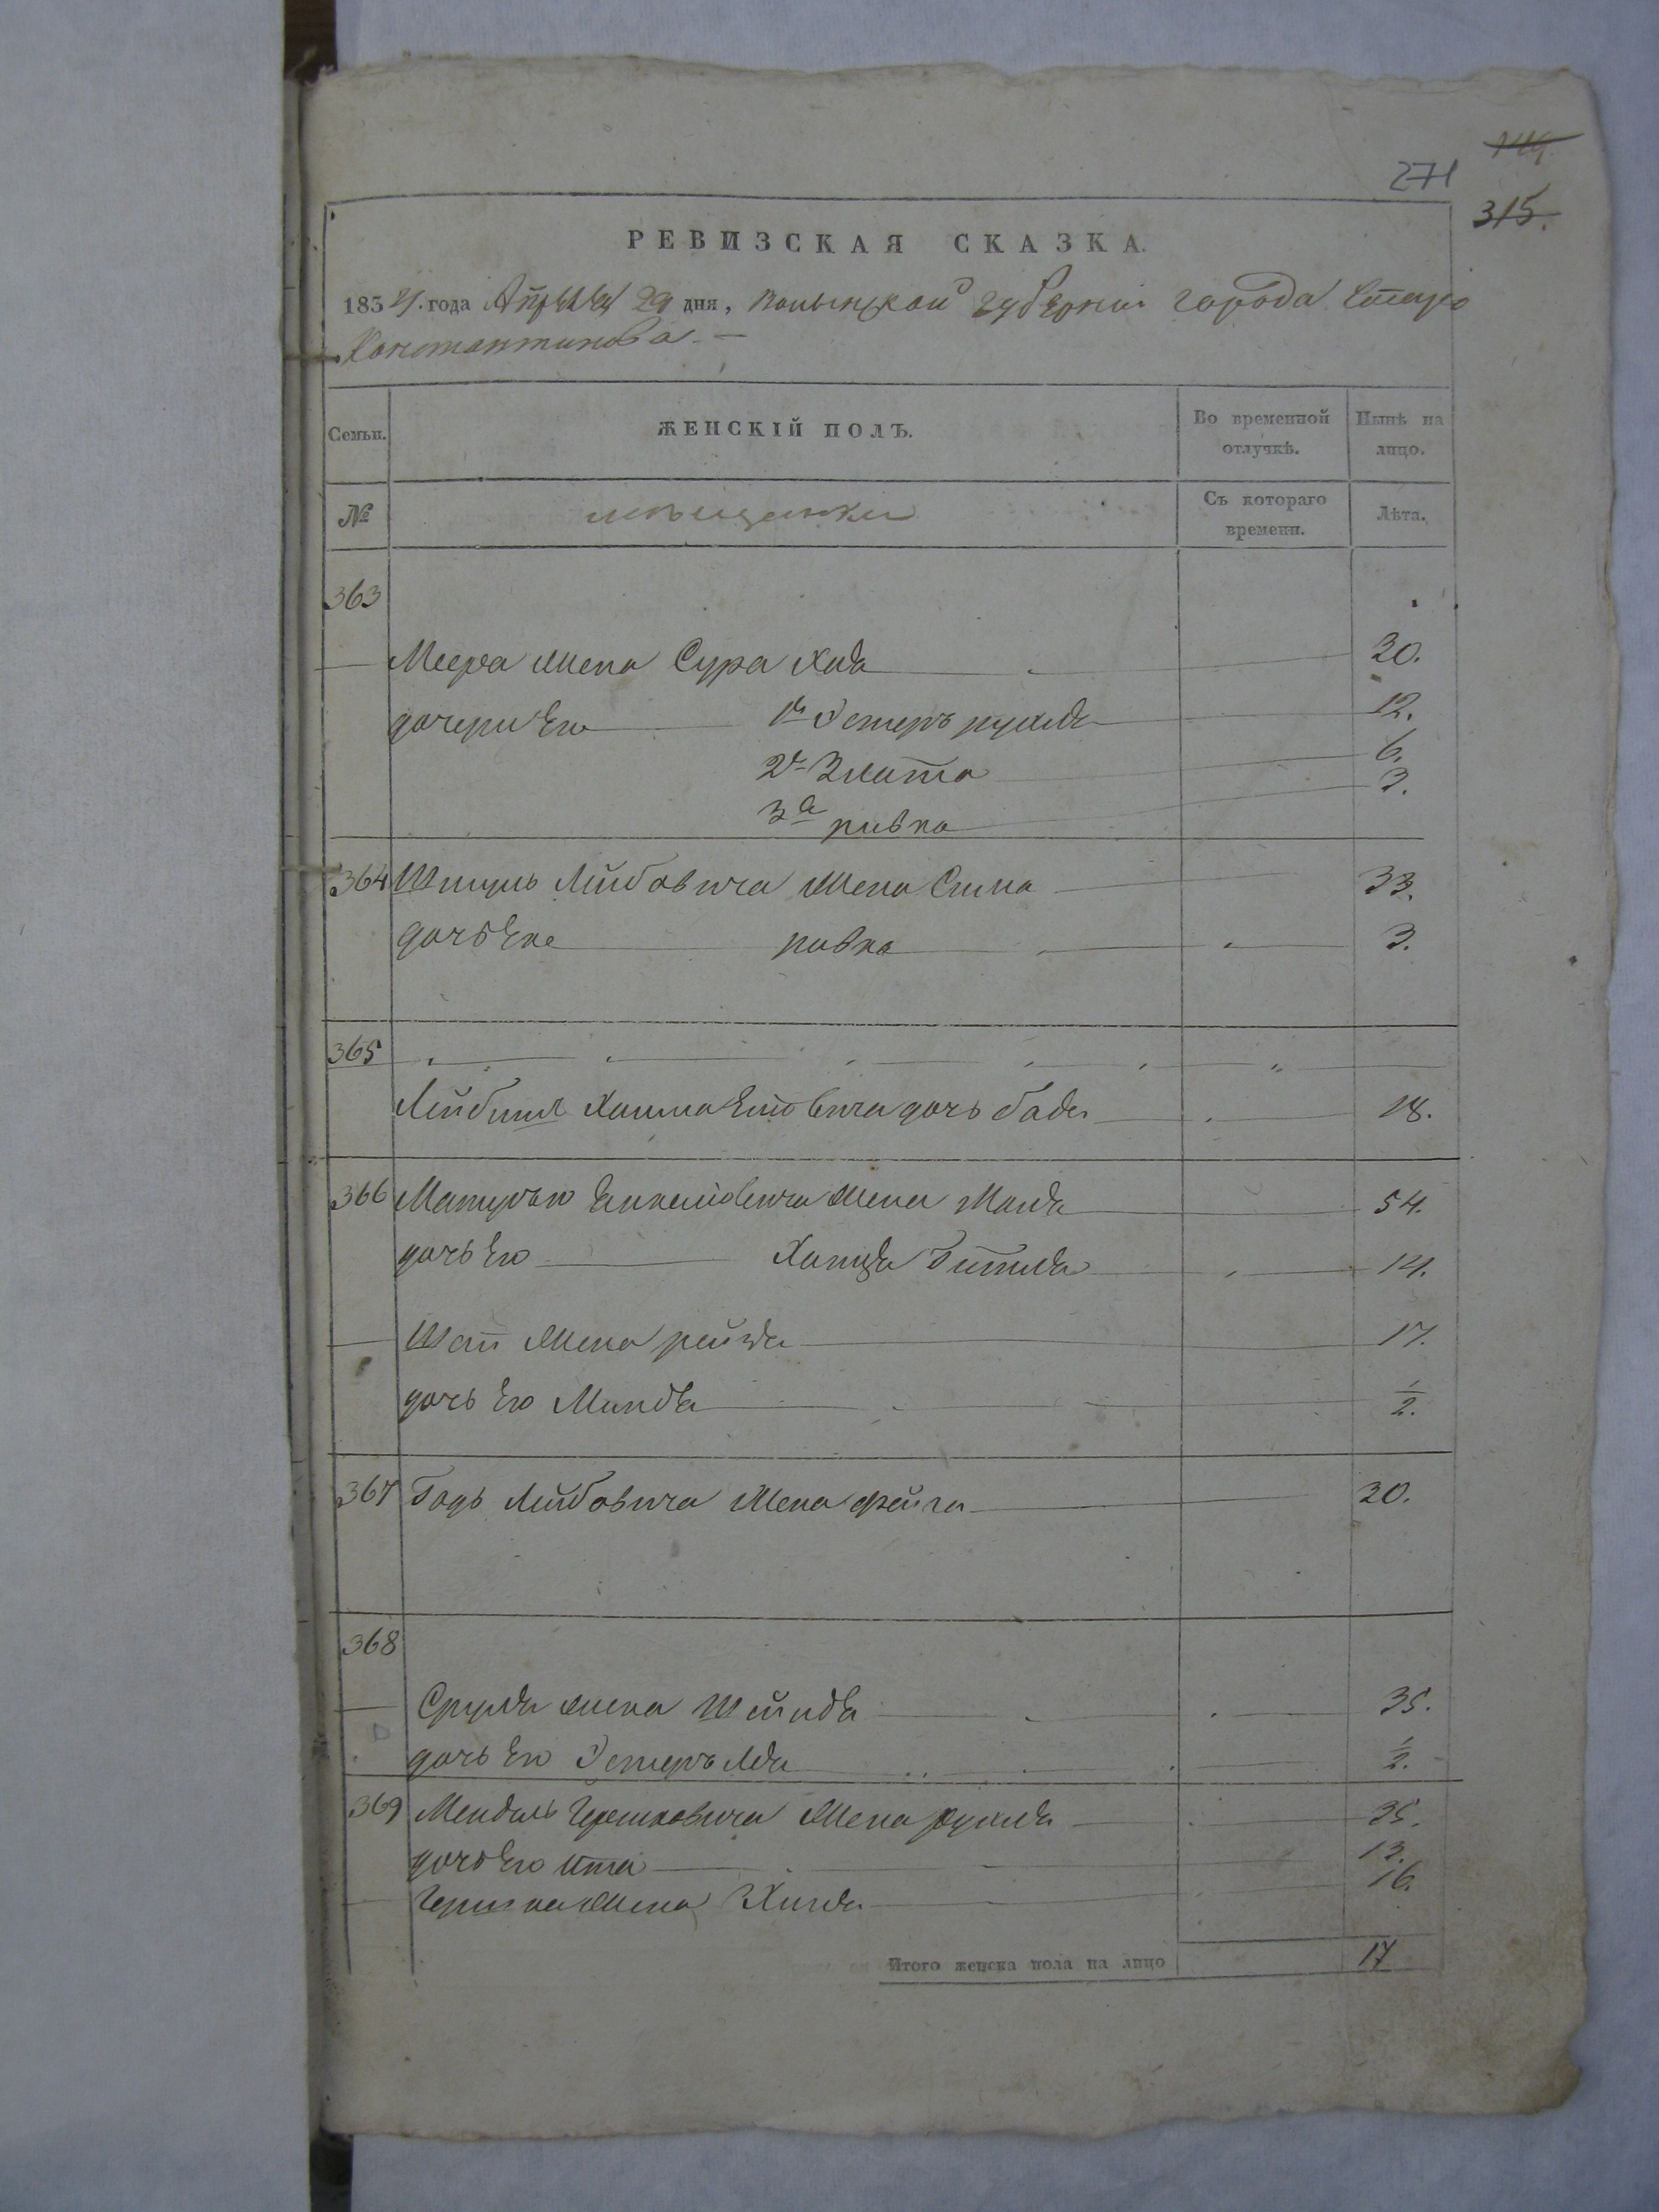 271
315.
РЕВИЗСКАЯ СКАЗКА.
1834. года Апреля 29 дня, Волынской Губернии города Старо
Константинова.
Семьи. ЖЕНСКІЙ ПОЛЪ. Во временной отлучкѣ. Нынѣ на лицо.
№ мѣщанки Съ котораго времени. Лѣта.
363
Меера жена Сура Хая 30.
дочери Его 1я Эстеръ рухля 12.
2я Злата 6.
3я ривка 3.
364 Лейбовича жена Сима 33.
дочь Его ривка 3.
365
дочь бася 18.
366 жена Маля 54.
дочь Его Гитля 14.
жена рейзя 17.
дочь Его Миндя 1/2.
367 Лейбовича жена фейга 30.
368
Сруля жена Шейндя 35.
дочь Его Эстеръ Лея 1/2.
369 Мендель Гершковича жена рухля 35.
дочь Его Ита 13.
Гершка жена 16.
Итого женска пола на лицо 17